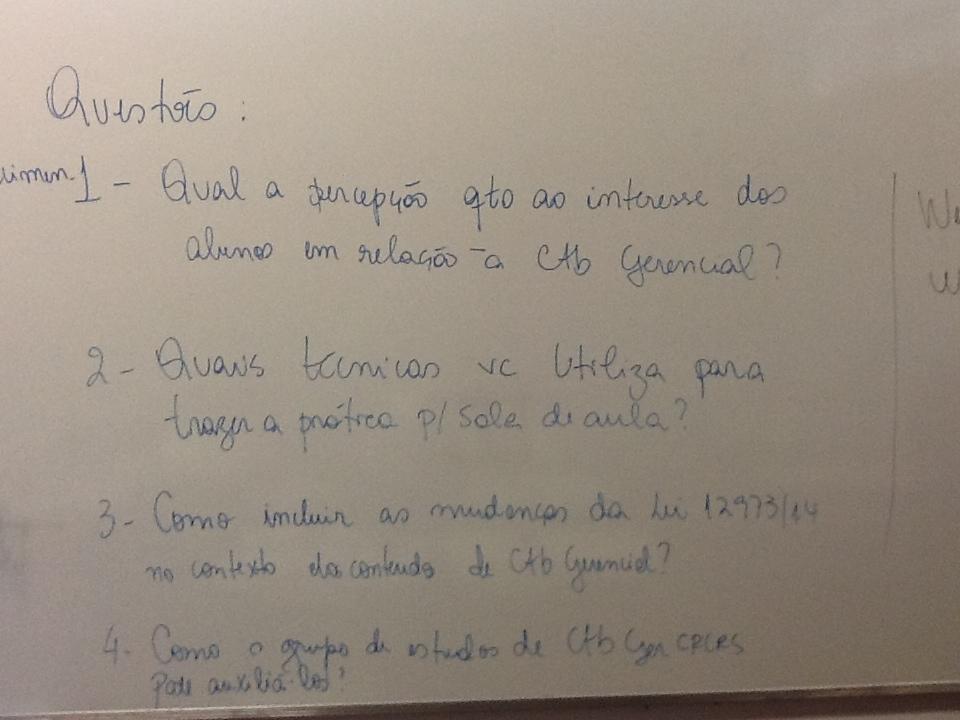 Questões:
1 - Qual a percepção qto ao interesse dos
alunos em relação a Ctb Gerencial?
2 - Quais tecnicas vc utiliza para
trazer a prática p/ sala de aula?
3 - Como incluir as mudanças da Lei 12973/14
no contexto do conteudo de Ctb Gerencial?
4. Como o grupo de estudos de Ctb Ger CRCRS
pode auxiliá-los?